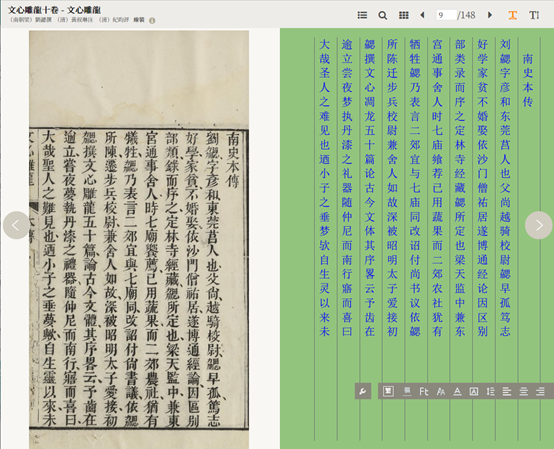 文心雕龍十卷 - 文心雕龍
(南朝梁) 劉勰撰 (清) 黃叔琳注 (清) 紀昀評 線裝
9 /148
南史本傳
劉勰字彥和東莞莒人也父尙越騎校尉勰早孤篤志
好學家貧不婚娶依沙門僧祐居遂博通經論因區別
部類錄而序之定林寺經藏勰所定也梁天監中兼東
宮通事舍人時七廟饗薦已用蔬果而二郊農社猶有
犧牲勰乃表言二郊宜與七廟同改詔付尙書議依勰
所陳遷步兵校尉兼舍人如故深被昭明太子愛接初
勰撰文心雕龍五十篇論古今文體其序畧云予齒在
逾立嘗夜夢執丹漆之禮器隨仲尼而南行寤而喜曰
大哉聖人之難見也迺小子之垂夢歟自生靈以來未
南史本传
刘勰字彦和东莞莒人也父尚越骑校尉勰早孤笃志
好学家贫不婚娶依沙门僧祐居遂博通经论因区别
部类录而序之定林寺经藏勰所定也梁天监中兼东
宫通事舍人时七庙飨荐已用蔬果而二郊农社犹有
牺牲勰乃表言二郊宜与七庙同改诏付尚书议依勰
所陈迁步兵校尉兼舍人如故深被昭明太子爱接初
勰撰文心凋龙五十篇论古今文体其序畧云予齿在
逾立尝夜梦执丹漆之礼器随仲尼而南行寤而喜曰
大哉圣人之难见也迺小子之垂梦欤自生灵以来未